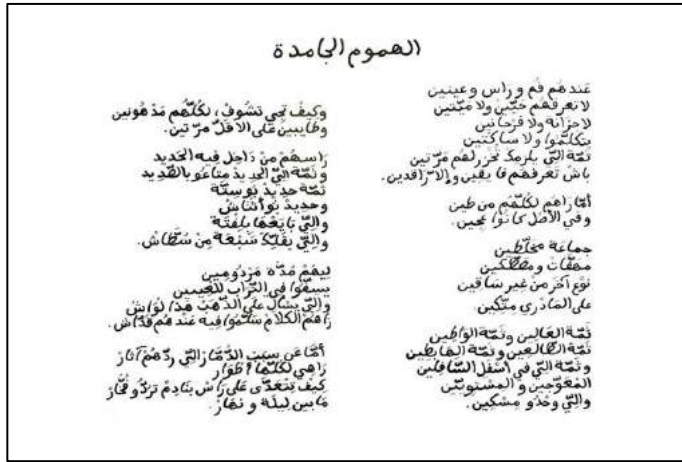 الهموم الجامدة
عندهم فم و راس وعينين
لا تعرفهم حيّين ولا ميّتين
لا حزانه ولا فرحانين
يتكلّموا ولا ساكتين
ثمّة الّي يلزمك تخزرلهم مرّتين
باش تعرفهم فايقين وإلا راقدين.
أمّا راهم لكلّهم من طين
وفي الأصل كانوا عجين.
جماعة مخلّطين
مصفّات ومصطكين
نوع آخر من غير ساقين
على المادري متّكين.
ثمّة العالين وثمّة الواطين
ثمّة الطّالعين وثمّة الهابطين
وثمّة الّي في أسفل السّافلين
المعوّجين والمستويّين
والّي وحدو مسكين.
وكيف تجي تشوف، لكلّهم مدهونين
وطايبين على الاقلّ مرّتين.
راسهم من داخل فيه الحديد
وثمّة الّي الحديد متاعو بالقديد
ثمّة حديد بوستّة
وحديد بو أنتاش
والّي بايعها بلفتة
والّي يقلّك شبعة من سطّاش.
ليهم مدّة مردومين
يسفّوا في التراب للعينين
والّي يسأل على الذّهب هذا لواش
راهم الكلام سلّموا فيه عندهم قدّاش.
أمّا عن سبب الدّمار الّي ردّهم آثار
راهي لكلّها أطوار
كيف تتعدّى على راس بنادم تردّو فخّار
ما بين ليلة و نهار.